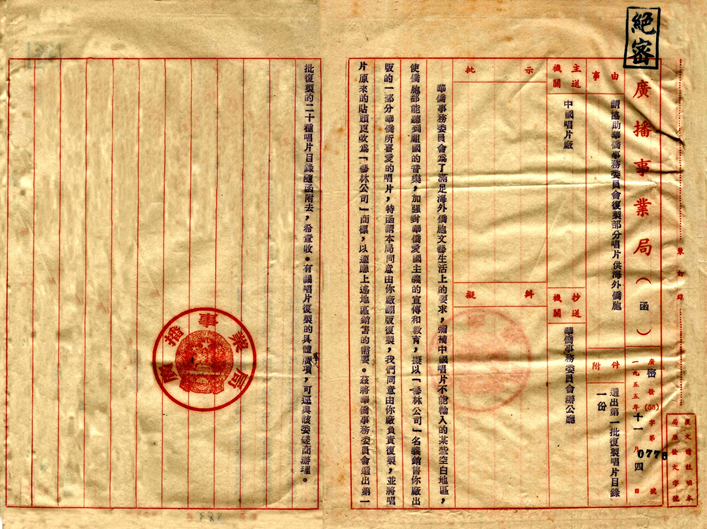 絕密
廣播事業局（函）
廣密發(55)字第0778號
一九五五年十一月四日
事由
請協助華僑事務委員會復製部分唱片供海外僑胞
附件
選出第一批復製唱片目錄
一份
主送機關
中國唱片廠
抄送機關
華僑事務委員會辦公廳
批示
擬辦
華僑事務委員會為了滿足海外僑胞文藝生活上的要求，彌補中國唱片不能輸入的某些空白地區，
使僑胞都能聽到祖國的音樂，加強對華僑愛國主義的宣傳和教育，擬以「藝林公司」名義銷售你廠出
版的一部分華僑所喜愛的唱片，特函請本局同意由你廠翻版復製，我們同意由你廠負責復製，並將唱
片原來的貼頭頁改為「藝林公司」商標，以適應上述地區銷售的需要。茲將華僑事務委員會選出第一
批復製的二十種唱片目錄隨函附去，希查收。有關唱片復製的具體事項，可逕與該委磋商辦理。
廣播事業局